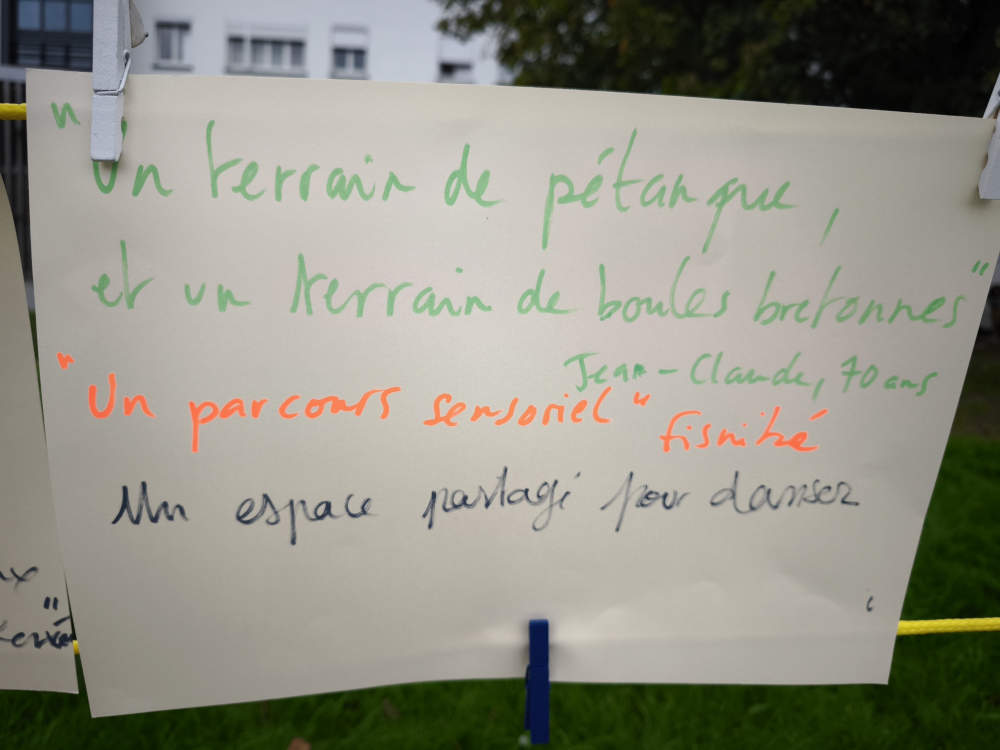 "Un terrain de pétanque,
et un terrain de boules bretonnes"
Jean-Claude, 70 ans
"Un parcours sensoriel"
Un espace partagé pour danser